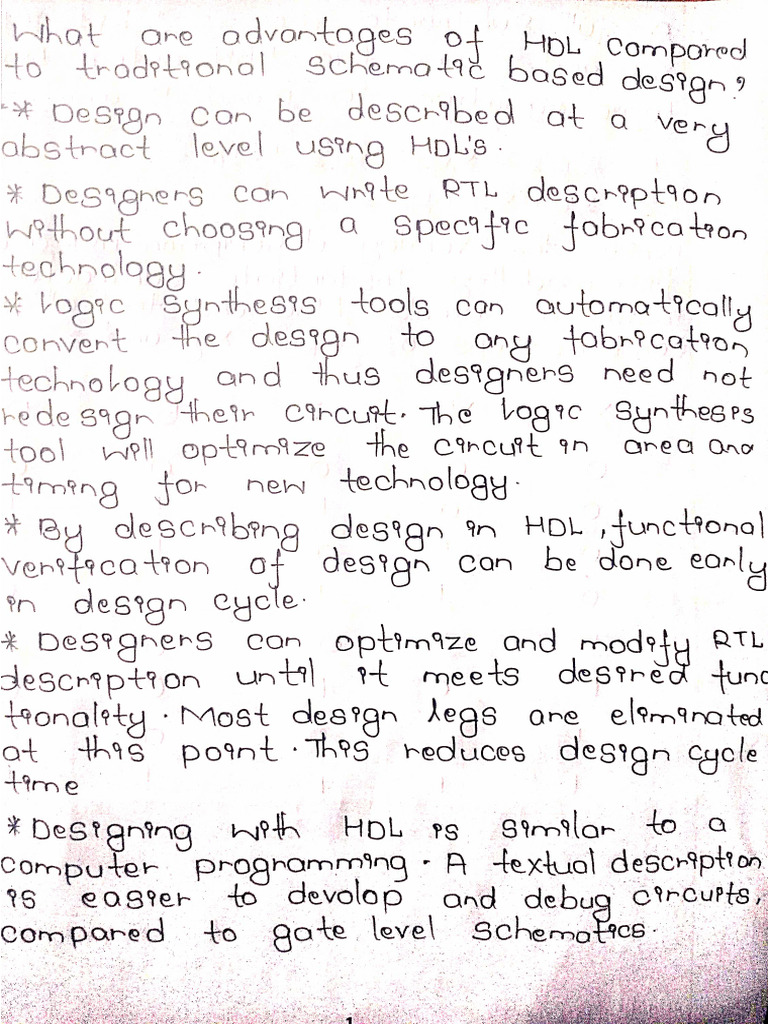 What are advantages of HDL compared
to traditional schematic based design?
* Design can be described at a very
abstract level using HDL's.
* Designers can write RTL description
without choosing a specific fabrication
technology.
* Logic synthesis tools can automatically
convent the design to any fabrication
technology and thus designers need not
redesign their circuit. The logic synthesis
tool will optimize the circuit in area and
timing for new technology.
* By describing design in HDL, functional
verification of design can be done early
in design cycle.
* Designers can optimize and modify RTL
description until it meets desired func
tionality. Most design legs are eliminated
at this point. This reduces design cycle
time
* Designing with HDL is similar to a
computer programming. A textual description
is easier to devolop and debug circuits,
compared to gate level schematics.
1